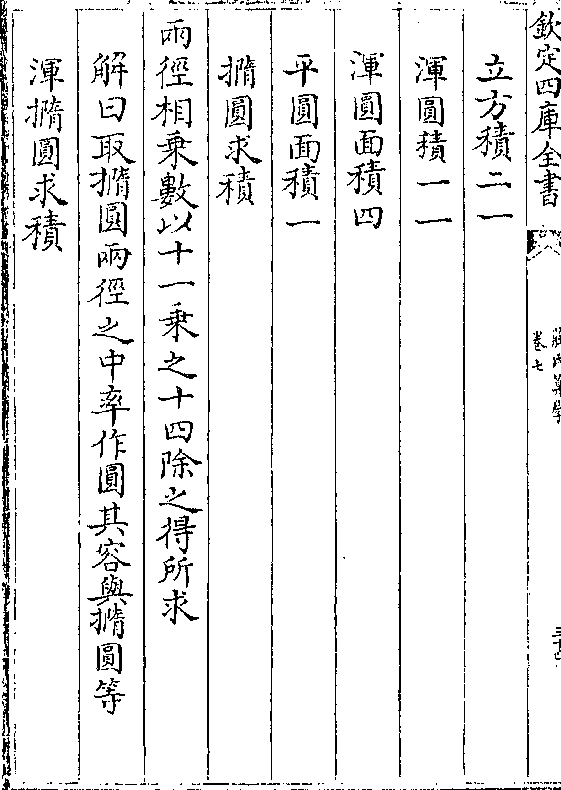 欽定四庫全書
卷七
立方積二一
渾圓積一一
渾圓面積四
平圓面積一
撱圓求積
兩徑相乗數以十一乗之十四除之得所求
解曰取撱圓兩徑之中率作圓其容與撱圓等
渾撱圓求積